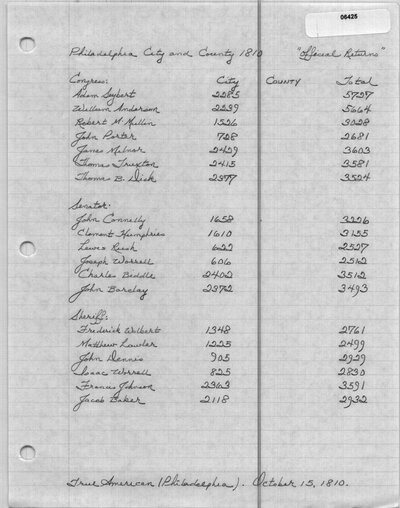 06425
Philadelphia City and County 1810 "Official Returns"
Congress: City COUNTY Total
Adam Seybert 2285 5727
William Anderson 2239 5664
Robert McMullin 1526 3028
John Porter 728 2681
James Milnor 2429 3603
Thomas Truxton 2415 3581
Thomas B. Dick 2377 3524
Senator:
John Connelly 1658 3226
Clement Humphries 1610 3155
Lewis Rush 622 2527
Joseph Worrell 606 2512
Charles Biddle 2402 3512
John Barclay 2372 3493
Sheriff:
Frederick Wolbert 1348 2761
Matthew Lawler 1225 2499
John Dennis 905 2929
Isaac Worrell 825 2830
Francis Johnson 2363 3591
Jacob Baker 2118 2932
True American (Philadelphia). October 15, 1810.